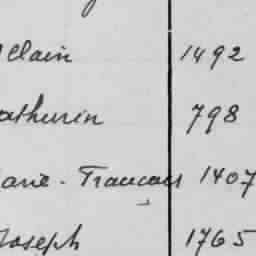 Clain 1492
athurin 798
arie-Francois 1407
Joseph 1765